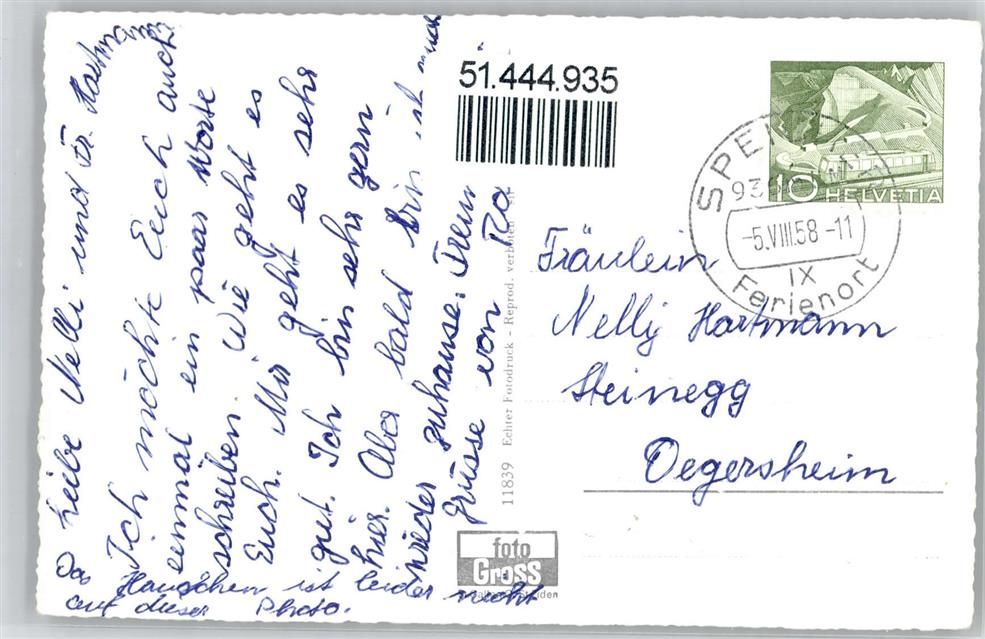 Leibe Nelli und Fr. Hartmann
Ich möchte Euch auch
einmal ein paar Worte
schreiben. Wie geht es
Euch. Mir geht es sehr
gut. Ich bin sehr gern
hier. Aber bald bin ist
wieder zuhause. Treue
Grüsse von
Das Hauschen ist leider nicht
auf dieser Photo.
51.444.935
11839 Echter Fotodruck - Reprod. verboten
foto
Gross
HELVETIA
10
SPEI
93
-5.VIII.58-11
IX
Ferienort
Fräulein
Nelly Hartmann
Steinegg
Degersheim